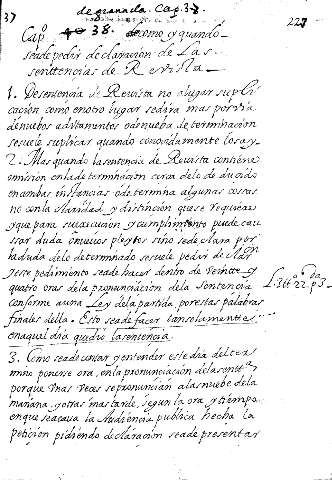 de granada. Cap. 37.
37
227
Cap.º 38. de como y quando
sea de pedir declaracion de Las
senttencias de Revista
1. De sentencia de Revista no a lugar supli
cacion como en otro lugar se dira mas por via
de nuebos aditamentos o de nueba determinacion
se suele suplicar quando conocidamente los ay
2. Mas quando la sentencia de Revista contiene
omision en la determinacion cerca de lo deducido
en ambas instancias o determina algunas cossas
no con la claridad y distincion que se requiere
y que para su execucion y cumplimiento puede cau
ssar duda o nuevos pleytos sino se declara por
la duda de lo determnado se suele pedir declaracion
y este pedimiento sea de hacer dentro de veinte y
quatro oras de la pronunciacion de la sentencia
conforme a una Ley de la partida por estas palabras
L. 3 tt 22. p. 3
finales della. Esto se a de facer tan solamente
en aquel dia que dio la sentencia.
3. Como sea de contar y entender este dia del ter
mino ponerse ora, en la pronunciacion de la sentt.ª
porque unas veces se pronuncian a las nuebe de la
mañana, y otras mas tarde, segun la ora, y tiempo
en que se acava la Audiencia publica hecha la
peticion pidiendo declaracion sea de presentar